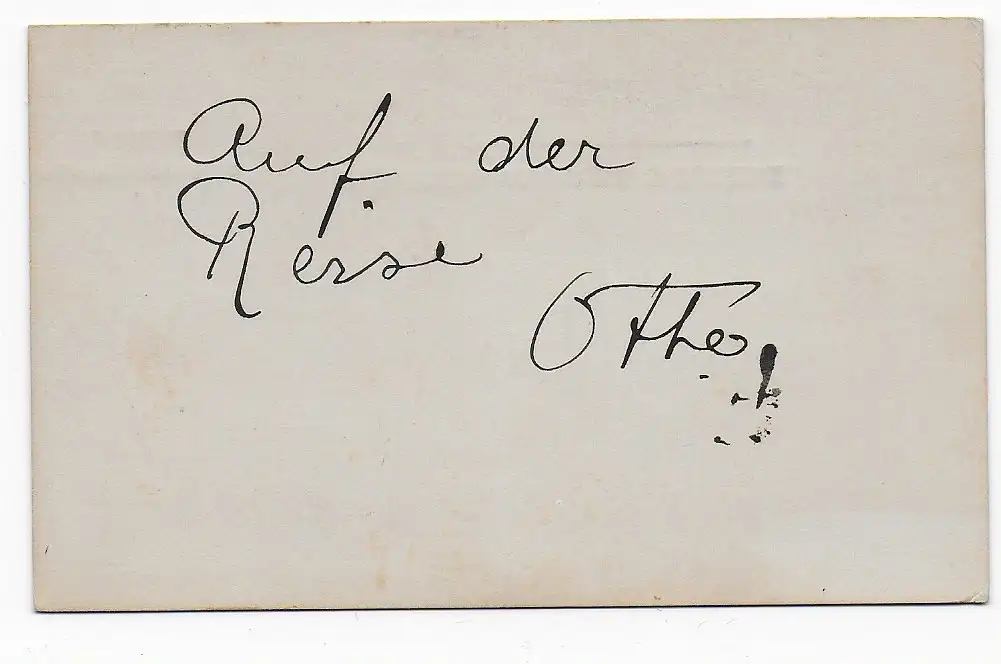 Auf der
Reise
Otto